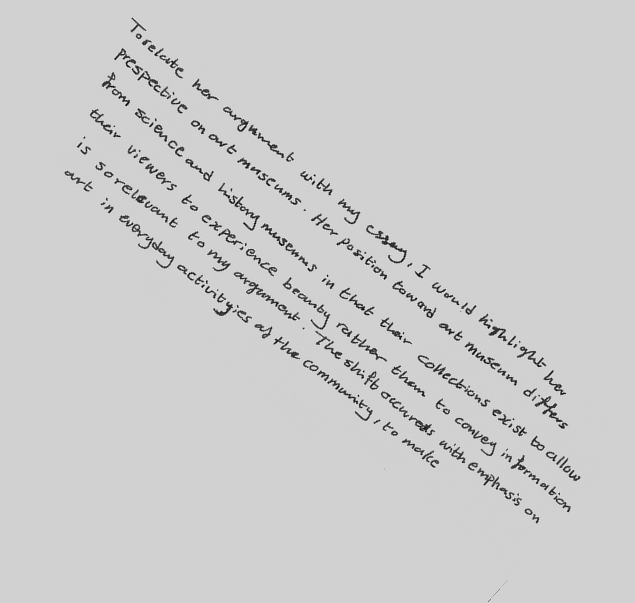 To relate her argument with my essay, I would highlight her
prespective on art museums. Her position toward art museum differs
from science and history museums in that their collections exist to allow
their viewers to experience beauty raither them to convey information
is so relevant to my argument. The shift occureds with emphasis on
art in everyday activityies of the community, to make